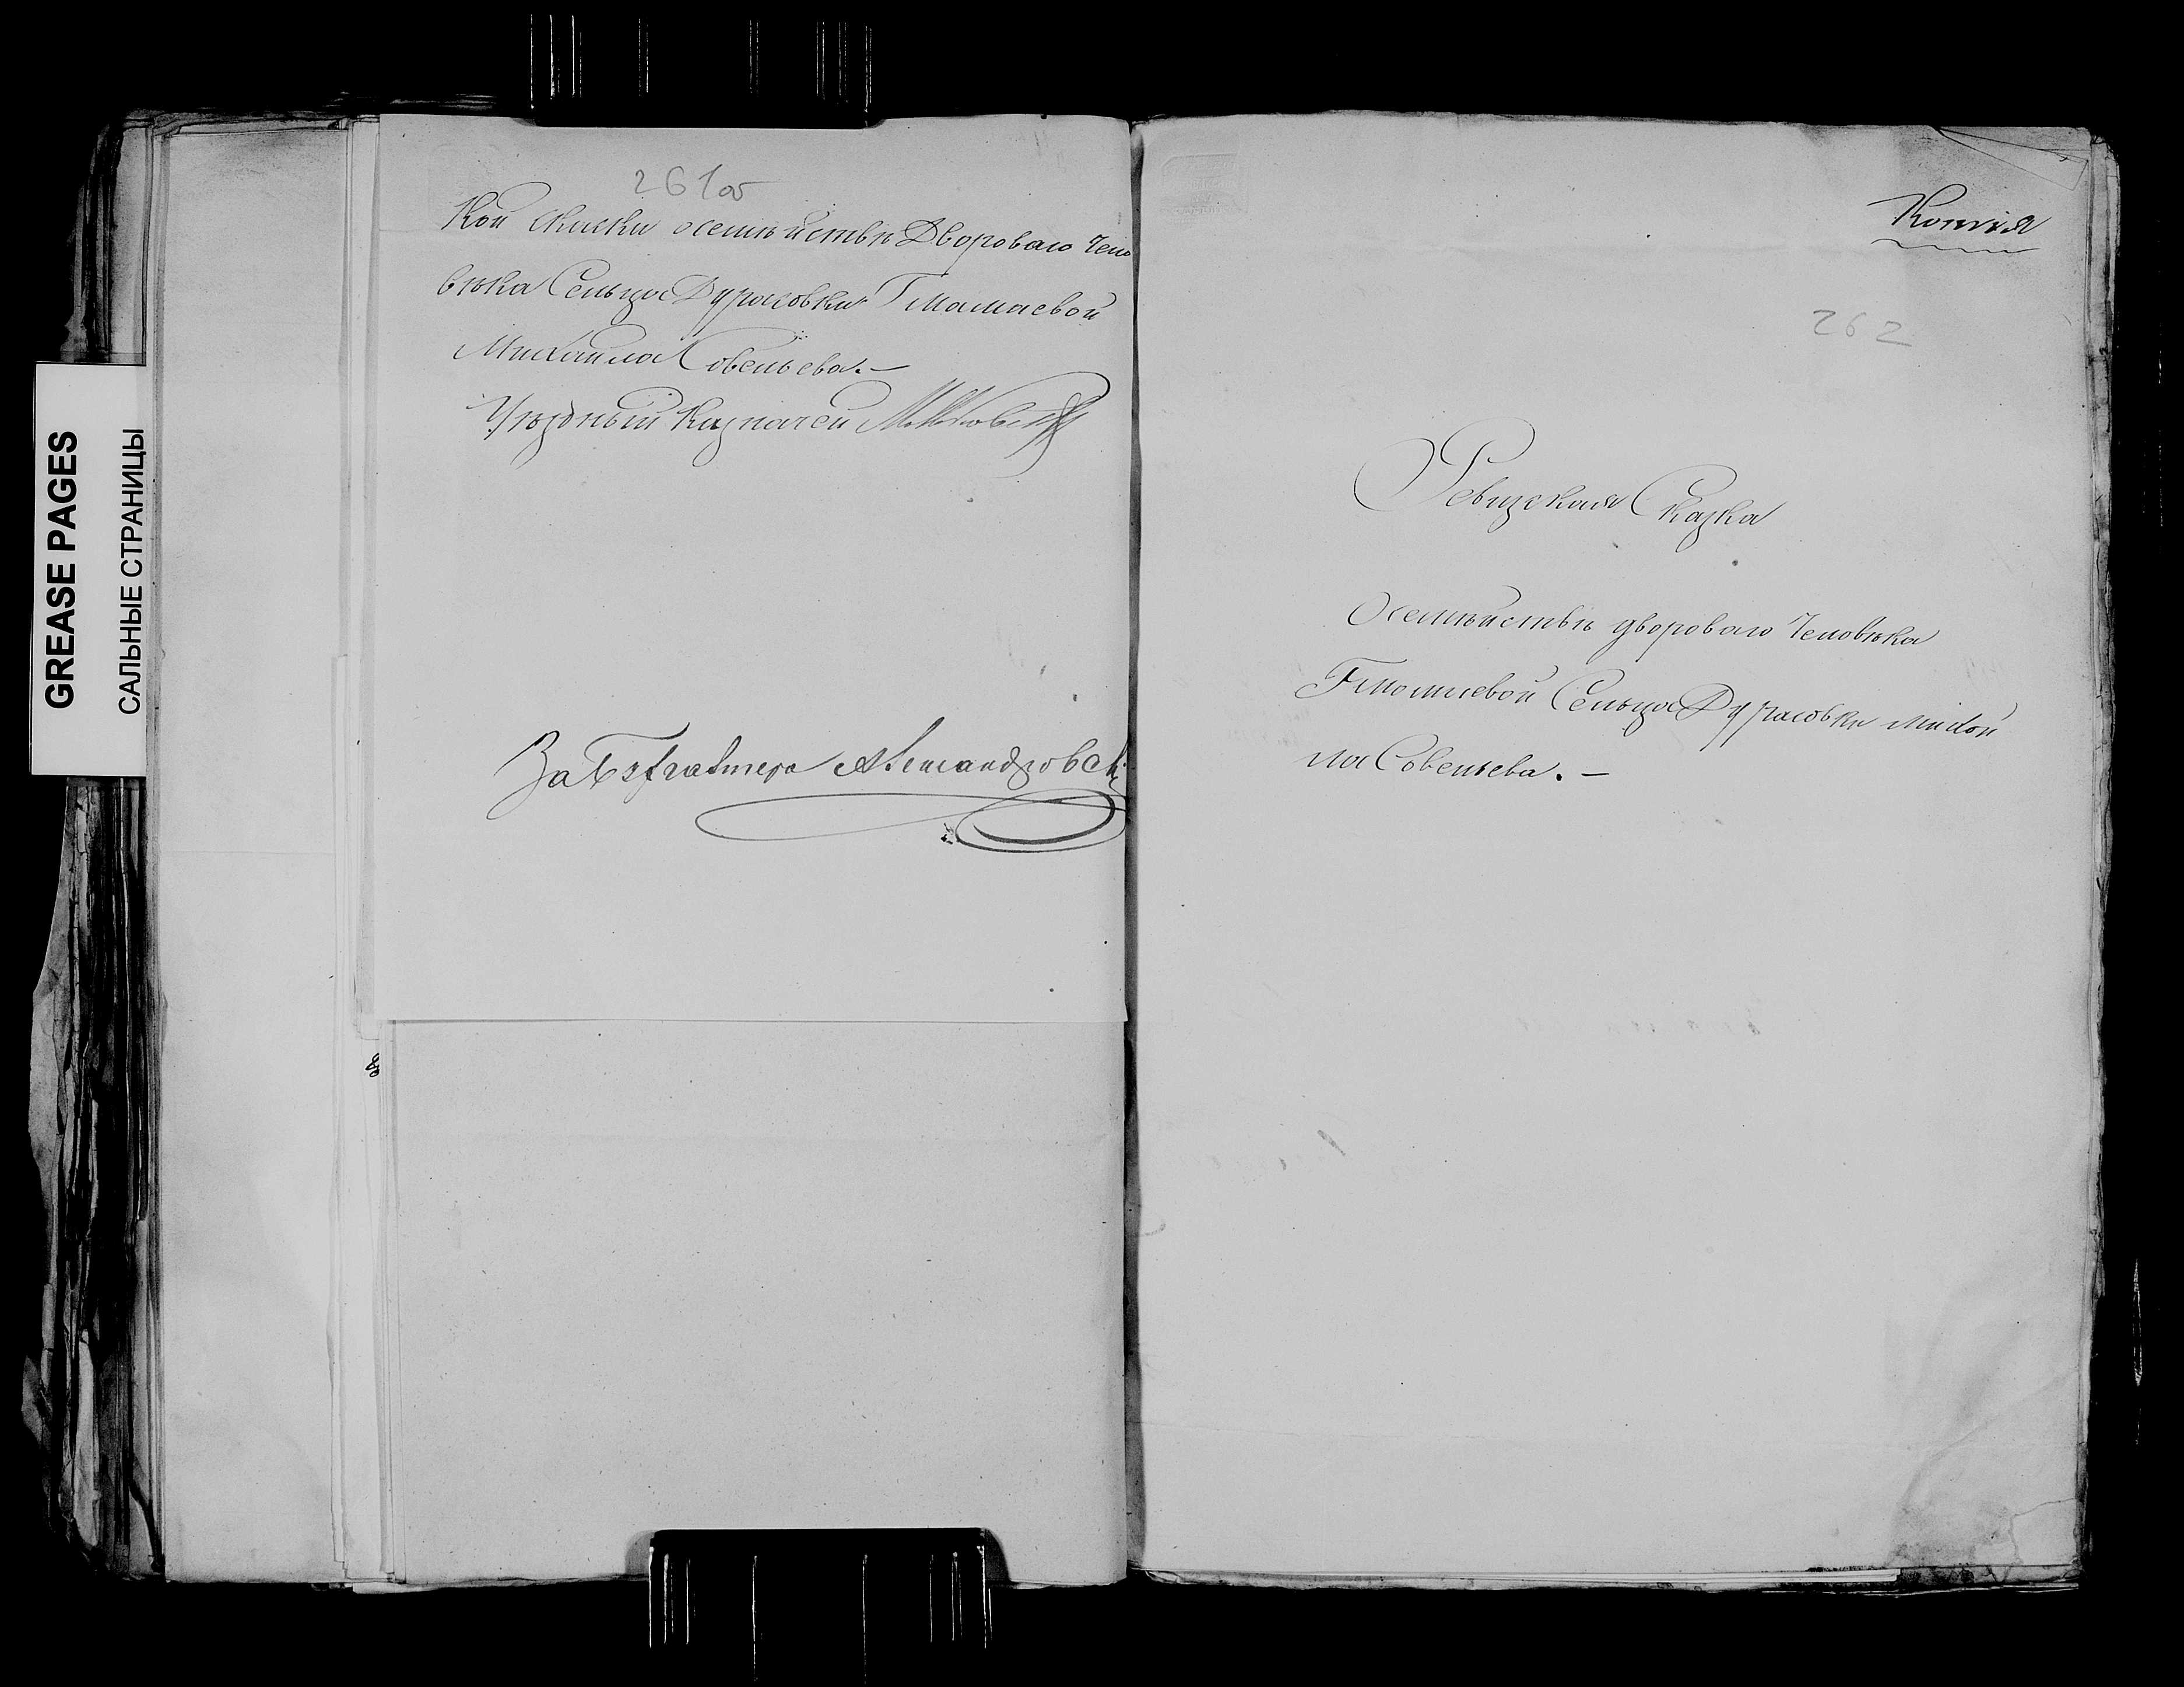 GREASE PAGES
САЛЬНЫЕ СТРАНИЦЫ
261об
кой скаски осемѣйствѣ Двороваго Чело
вѣка Сельца Дурасовки Г Мамаевой
Михаила Совельева. —
Уѣздный Казначей
За Бухгалтера Александровск
Копія
262
Ревизская Сказка
Осемѣйствѣ двороваго Человѣка
Г Мамаевой Сельца Дурасовки Михай
ла Совельева. —